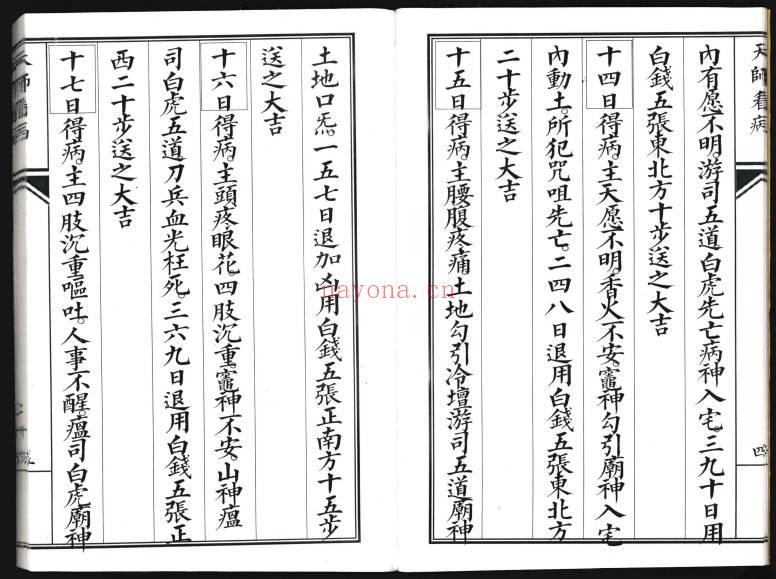 天師看病
內有愿不明游司五道白虎先亡病神入宅。三九十日用
白錢五張東北方十步送之大吉
十四日得病。主天愿不明。香火不安。竈神勾引廟神入宅
內動土。所犯咒咀先亡。二四八日退用白錢五張東北方
二十步送之大吉
十五日得病。主腰腹疼痛。土地勾引冷壇游司五道廟神
土地口炁。一五七日退加凶用白錢五張正南方十五步
送之大吉
十六日得病。主頭疼眼花。四肢沉重。竈神不安。山神瘟
司白虎五道刀兵血光枉死。三六九日退用白錢五張正
西二十步送之大吉
十七日得病。主四肢沉重嘔吐。人事不醒。瘟司白虎廟神
nayona.cn